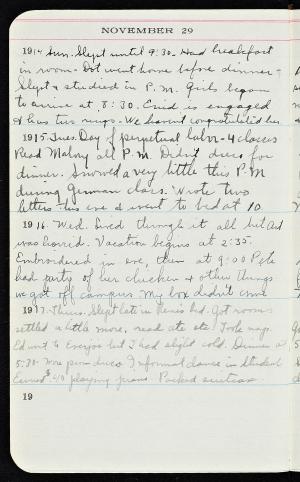 NOVEMBER 29
1914 Sun. Slept until 9:30. Had breakfast
in room. Dot went home before dinner -
Slept & studied in P.M. Girls began
to arrive at 8:30. Enid is engaged
& has two rings. We haven't congratulated her
1915 Tues. Day of perpetual labor - 4 classes
Read Malory all P.M. Didn't dress for
dinner. Snowed a very little this P.M
during German class. Wrote two
letters this eve & went to bed at 10.
1916. Wed. Lived through it all but Art
was horrid. Vacation begins at 2:35.
Embroidered in eve, then at 9:00 Pete
had party of her chicken & other things
we got off campus. My box didn't come
1917. Thurs. Slept late in bed. Got rooms
settled a little more, read etc etc. Took nap.
Ed went to but I had slight cold. Dinner at
5:30. Wore dress. Informal dance in Student
Earned playing piano. Packed suitcase
19